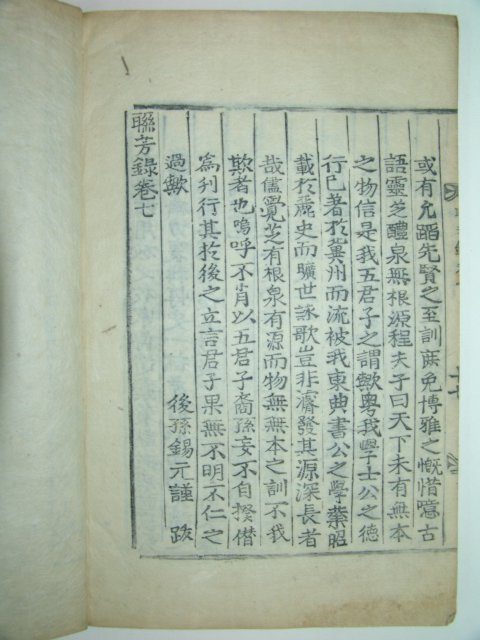 或有允蹈先賢之至訓庶免博雅之慨惜噫古
語靈芝醴泉無根源程夫子曰天下未有無本
之物信是我五君子之謂歟粤我學士公之德
行已著於冀州而流被我東典書公之學業昭
載於麗史而曠世詠歌豈非濬發其源深長者
哉儘覺芝有根泉有源而物無無本之訓不我
欺者也嗚呼不肖以五君子裔孫妄不自揆僭
爲刊行其於後之立言君子果無不明不仁之
過歟
後孫錫元謹 跋
聯芳錄卷七